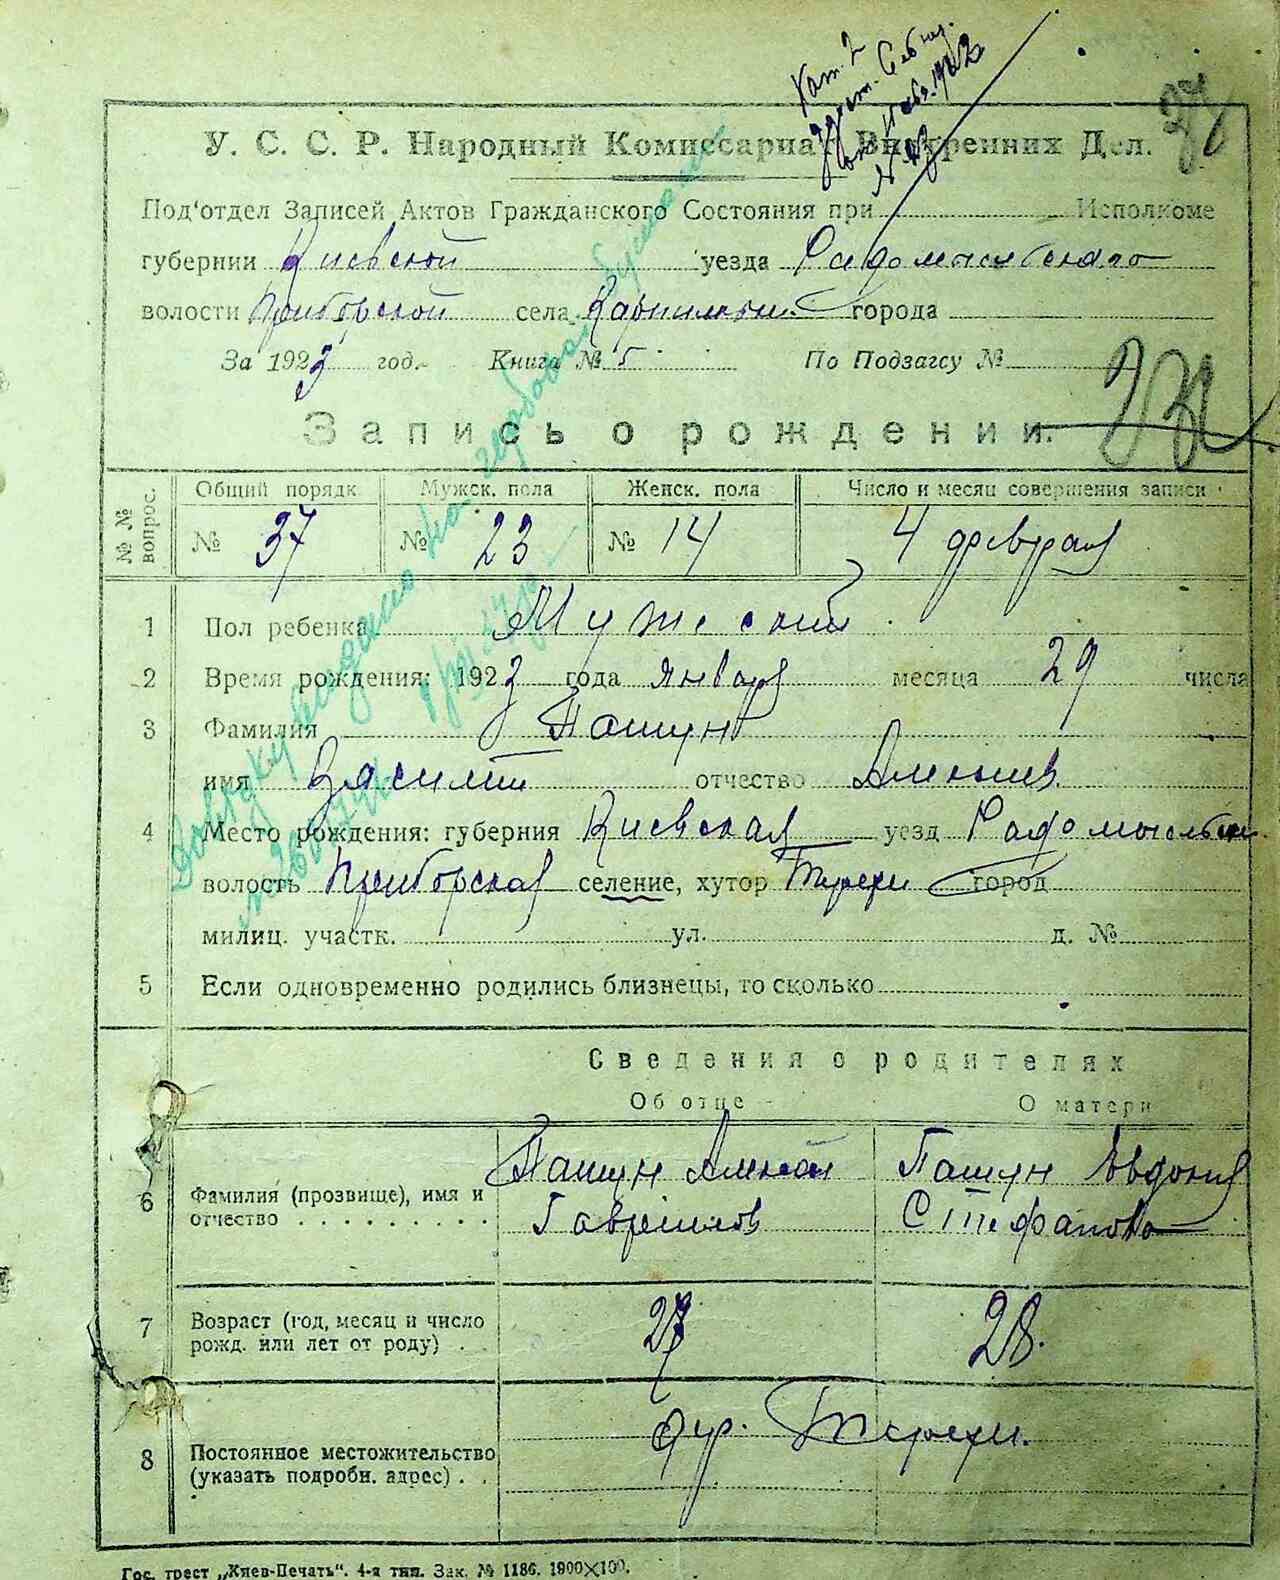 27
У. С. С. Р. Народный Комиссариат Внутренних Дел.
Под'отдел Записей Актов Гражданского Состояния при Исполкоме
губернии Киевской уезда Радомысльского
волости Приборской села города
За 1923 год. Книга № 5 По Подзагсу №
232
Запись о рождении.
№ № вопрос. Общий порядк. Мужск. пола Женск. пола Число и месяц совершения записи
№ 37 № 23 № 14 4 февраля
1 Пол ребенка Мужской
2 Время рождения: 1923 года января месяца 29 числа
3 Фамилия Пашун
имя Василий отчество
4 Место рождения: губерния Киевская уезд Радомысльский
волость Приборская селение, хутор Терехи город
милиц. участк. ул. д. №
5 Если одновременно родились близнецы, то сколько
Сведения о родителях
Об отце О матери
6 Фамилия (прозвище), имя и отчество . . . . . . . . . Пашун Алексей Гаврилов Пашун Евдокия Стефанова
7 Возраст (год, месяц и число рожд. или лет от роду) . . 27 28.
8 Постоянное местожительство (указать подробн. адрес) . . хут. Терехи.
Гос. трест „Киев-Печать“. 4-я тип. Зак. № 1186. 1900×100.